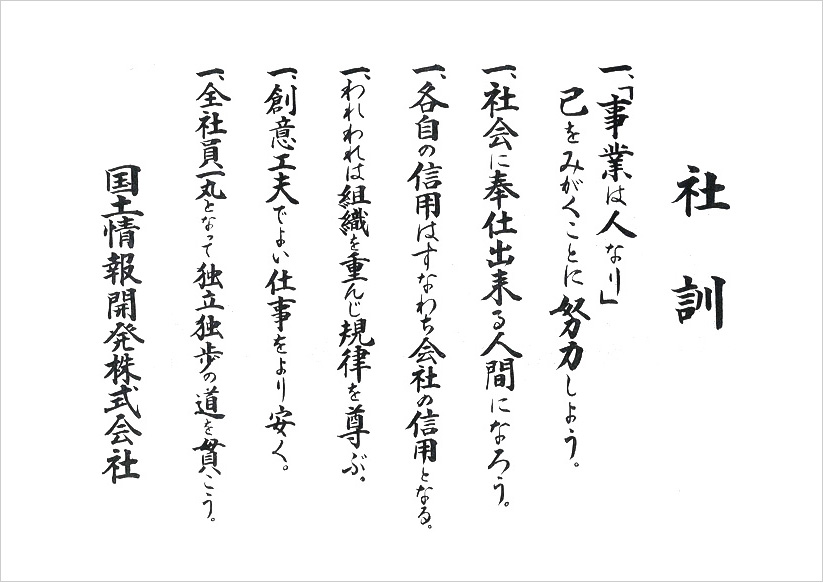 社訓
一、「事業は人なり」
己をみがくことに努力しよう。
一、社会に奉仕出来る人間になろう。
一、各自の信用はすなわち会社の信用となる。
一、われわれは組織を重んじ規律を尊ぶ。
一、創意工夫でよい仕事をより安く。
一、全社員一丸となって独立独歩の道を貫こう。
国土情報開発株式会社